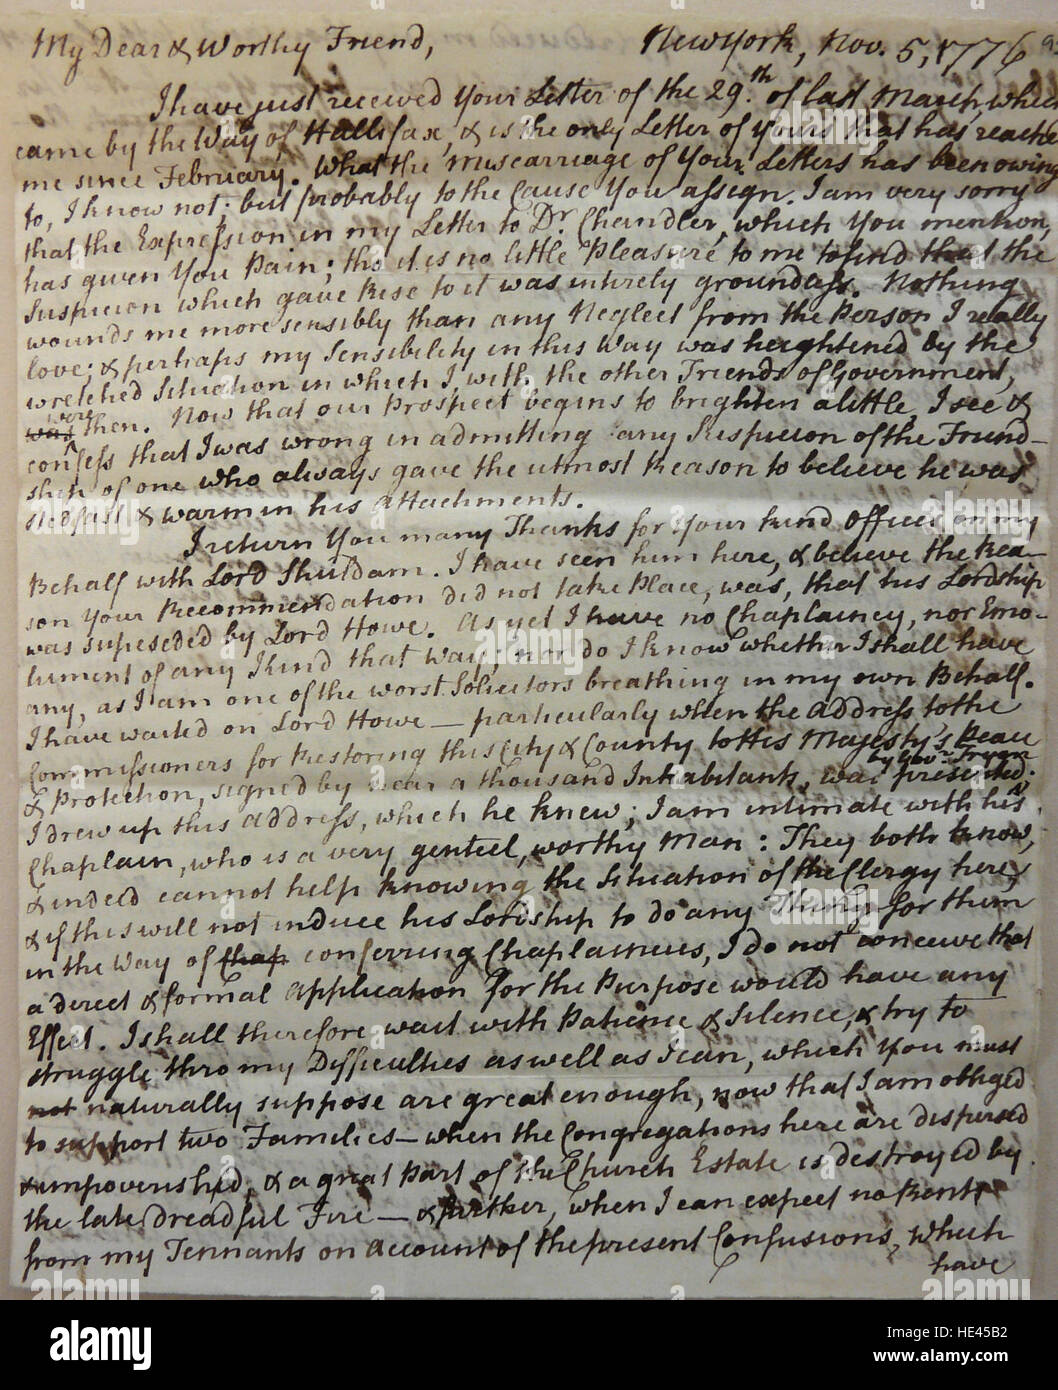 My Dear & Worthy Friend, New York, Nov. 5, 1776
I have just received Your Letter of the 29.th of last March, which
came by the Way of Hallifax, & is the only Letter of Yours that has reach
me since February. What the miscarriage of Your Letters has been owing
to, I know not; but probably to the Cause You assign. I am very sorry
that the Expression in my Letter to Dr. Chandler, which You mention,
has given You Pain; tho it is no little Pleasure to me to find that the
Suspicion which gave Rise to it was intirely groundless. Nothing
wounds me more sensibly than any Neglect from the Person I really
love; & perhaps my Sensibility in this Way was heightened by the
wretched Situation in which I, with the other Friends of Government,
were
was then. Now that our Prospect begins to brighten a little, I see &
confess that I was wrong in admitting any Suspicion of the Friend-
ship of one who always gave the utmost Reason to believe he was
stedfast & warm in his Attachments.
I return You many Thanks for Your kind Offices on my
Behalf with Lord Shuldam. I have seen him here, & believe the Rea-
son Your Recommendation did not take Place, was, that his Lordship
was superseded by Lord Howe. As yet I have no Chaplaincy, nor Emo-
lument of any Kind that Way; nor do I know whether I shall have
any, as I am one of the worst Solicitors breathing in my own Behalf.
I have waited on Lord Howe — particularly when the Address to the
Commissioners for Restoring this City & County to His Majesty's Peace
by Gov.r Tryon
& Protection, signed by near a thousand Inhabitants, was presented.
I drew up this Address, which he knew; I am intimate with his
Chaplain, who is a very genteel, worthy Man: They both know,
& indeed cannot help knowing the Situation of the Clergy here;
& if this will not induce his Lordship to do any Thing for them
in the Way of Chap conferring Chaplaincies, I do not conceive that
a direct & formal Application for the Purpose would have any
Effect. I shall therefore wait with Patience & Silence, & try to
struggle thro my Difficulties as well as I can, which You must
not naturally suppose are great enough, now that I am obliged
to support two Families — when the Congregations here are dispersed
& impoverished, & a great Part of the Church Estate is destroyed by
the late dreadful Fire — & further, when I can expect no Rents
from my Tennants on account of the present Confusions, which
have
alamy
Image ID: HE45B2
www.alamy.com